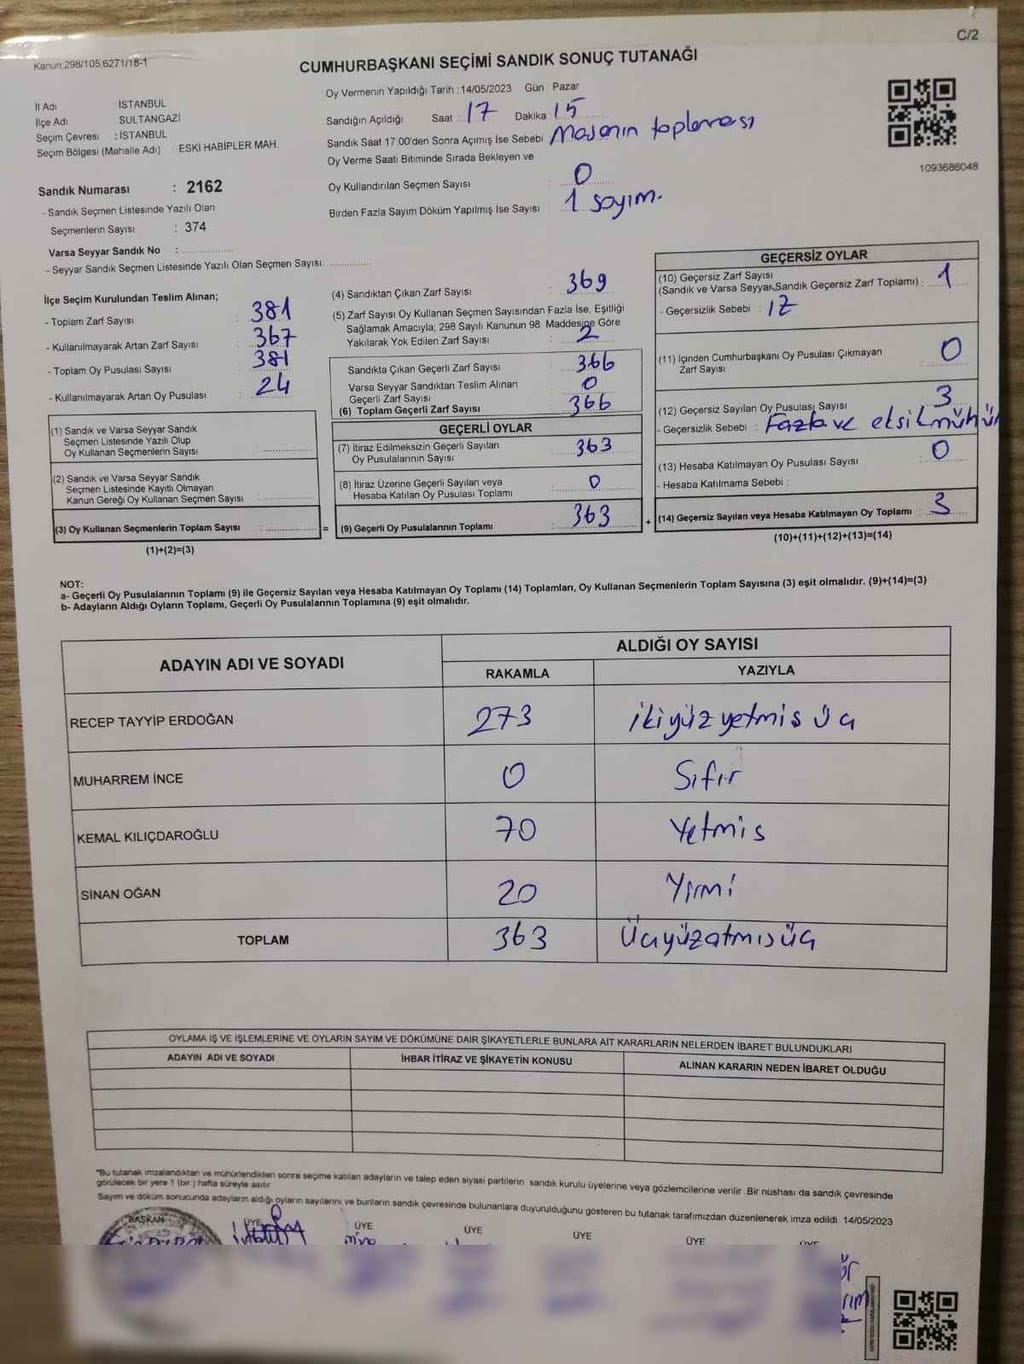 C/2
Kanun:298/105,6271/18-1
CUMHURBAŞKANI SEÇİMİ SANDIK SONUÇ TUTANAĞI
İl Adı : İSTANBUL
İlçe Adı : SULTANGAZİ
Seçim Çevresi : İSTANBUL
Seçim Bölgesi (Mahalle Adı) : ESKİ HABİPLER MAH.
Sandık Numarası : 2162
- Sandık Seçmen Listesinde Yazılı Olan
Seçmenlerin Sayısı : 374
Varsa Seyyar Sandık No :
- Seyyar Sandık Seçmen Listesinde Yazılı Olan Seçmen Sayısı:
Oy Vermenin Yapıldığı Tarih : 14/05/2023 Gün : Pazar
Sandığın Açıldığı Saat : 17 Dakika 15
Sandık Saat 17:00'den Sonra Açımış İse Sebebi : Masanın toplanması
Oy Verme Saati Bitiminde Sırada Bekleyen ve
Oy Kullandırılan Seçmen Sayısı : 0
Birden Fazla Sayım Döküm Yapılmış İse Sayısı : 1 sayım.
1093686048
İlçe Seçim Kurulundan Teslim Alınan;
- Toplam Zarf Sayısı : 381
- Kullanılmayarak Artan Zarf Sayısı : 367
- Toplam Oy Pusulası Sayısı : 381
- Kullanılmayarak Artan Oy Pusulası : 24
(1) Sandık ve Varsa Seyyar Sandık
Seçmen Listesinde Yazılı Olup
Oy Kullanan Seçmenlerin Sayısı :
(2) Sandık ve Varsa Seyyar Sandık
Seçmen Listesinde Kayıtlı Olmayan
Kanun Gereği Oy Kullanan Seçmen Sayısı :
(3) Oy Kullanan Seçmenlerin Toplam Sayısı : =
(1)+(2)=(3)
(4) Sandıktan Çıkan Zarf Sayısı : 369
(5) Zarf Sayısı Oy Kullanan Seçmen Sayısından Fazla İse, Eşitliği
Sağlamak Amacıyla; 298 Sayılı Kanunun 98. Maddesine Göre
Yakılarak Yok Edilen Zarf Sayısı : 2
Sandıkta Çıkan Geçerli Zarf Sayısı : 366
Varsa Seyyar Sandıktan Teslim Alınan
Geçerli Zarf Sayısı : 0
(6) Toplam Geçerli Zarf Sayısı : 366
GEÇERLİ OYLAR
(7) İtiraz Edilmeksizin Geçerli Sayılan
Oy Pusulalarının Sayısı : 363
(8) İtiraz Üzerine Geçerli Sayılan veya
Hesaba Katılan Oy Pusulası Toplamı : 0
(9) Geçerli Oy Pusulalarının Toplamı : 363 +
GEÇERSİZ OYLAR
(10) Geçersiz Zarf Sayısı
(Sandık ve Varsa Seyyar Sandık Geçersiz Zarf Toplamı) : 1
- Geçersizlik Sebebi :
(11) İçinden Cumhurbaşkanı Oy Pusulası Çıkmayan
Zarf Sayısı : 0
(12) Geçersiz Sayılan Oy Pusulası Sayısı : 3
- Geçersizlik Sebebi : Fazla ve eksik mühür
(13) Hesaba Katılmayan Oy Pusulası Sayısı : 0
- Hesaba Katılmama Sebebi :
(14) Geçersiz Sayılan veya Hesaba Katılmayan Oy Toplamı : 3
(10)+(11)+(12)+(13)=(14)
NOT:
a- Geçerli Oy Pusulalarının Toplamı (9) ile Geçersiz Sayılan veya Hesaba Katılmayan Oy Toplamı (14) Toplamları, Oy Kullanan Seçmenlerin Toplam Sayısına (3) eşit olmalıdır. (9)+(14)=(3)
b- Adayların Aldığı Oyların Toplamı, Geçerli Oy Pusulalarının Toplamına (9) eşit olmalıdır.
ADAYIN ADI VE SOYADI ALDIĞI OY SAYISI
RAKAMLA YAZIYLA
RECEP TAYYİP ERDOĞAN 273 ikiyüz yetmis üç
MUHARREM İNCE 0 Sıfır
KEMAL KILIÇDAROĞLU 70 Yetmis
SİNAN OĞAN 20 Yirmi
TOPLAM 363 Üçyüzatmısüç
OYLAMA İŞ VE İŞLEMLERİNE VE OYLARIN SAYIM VE DÖKÜMÜNE DAİR ŞİKAYETLERLE BUNLARA AİT KARARLARIN NELERDEN İBARET BULUNDUKLARI
ADAYIN ADI VE SOYADI İHBAR İTİRAZ VE ŞİKAYETİN KONUSU ALINAN KARARIN NEDEN İBARET OLDUĞU
*Bu tutanak imzalandıktan ve mühürlendikten sonra seçime katılan adayların ve talep eden siyasi partilerin sandık kurulu üyelerine veya gözlemcilerine verilir. Bir nüshası da sandık çevresinde
görülecek bir yere 1 (bir) hafta süreyle asılır
Sayım ve döküm sonucunda adayların aldığı oyların sayılarını ve bunların sandık çevresinde bulunanlara duyurulduğunu gösteren bu tutanak tarafımızdan düzenlenerek imza edildi. 14/05/2023
BAŞKAN ÜYE ÜYE ÜYE ÜYE ÜYE ÜYE